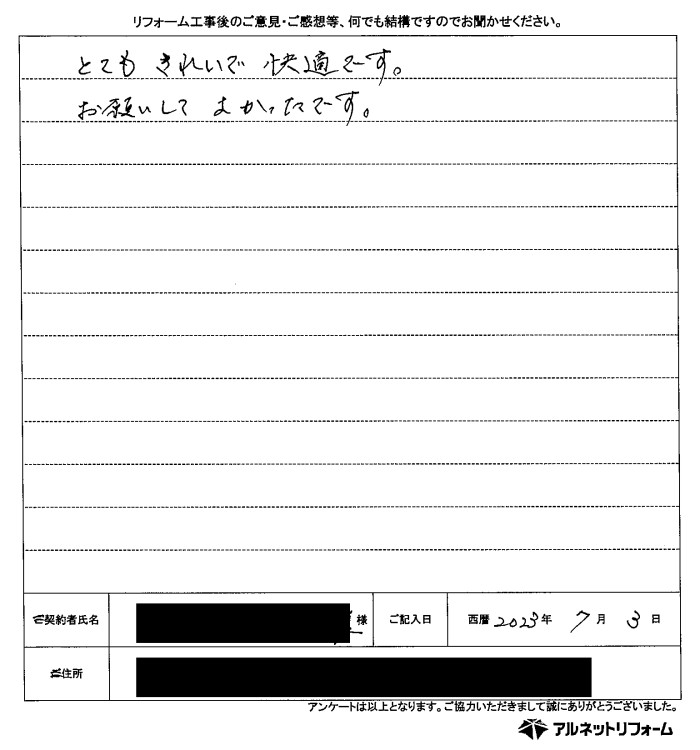 リフォーム工事後のご意見・ご感想等、何でも結構ですのでお聞かせください。
とても きれいで 快適です。
お願いして よかったです。
ご契約者氏名
様
ご記入日
西暦 2023年 7月 3日
ご住所
アンケートは以上となります。ご協力いただきまして誠にありがとうございました。
アルネットリフォーム